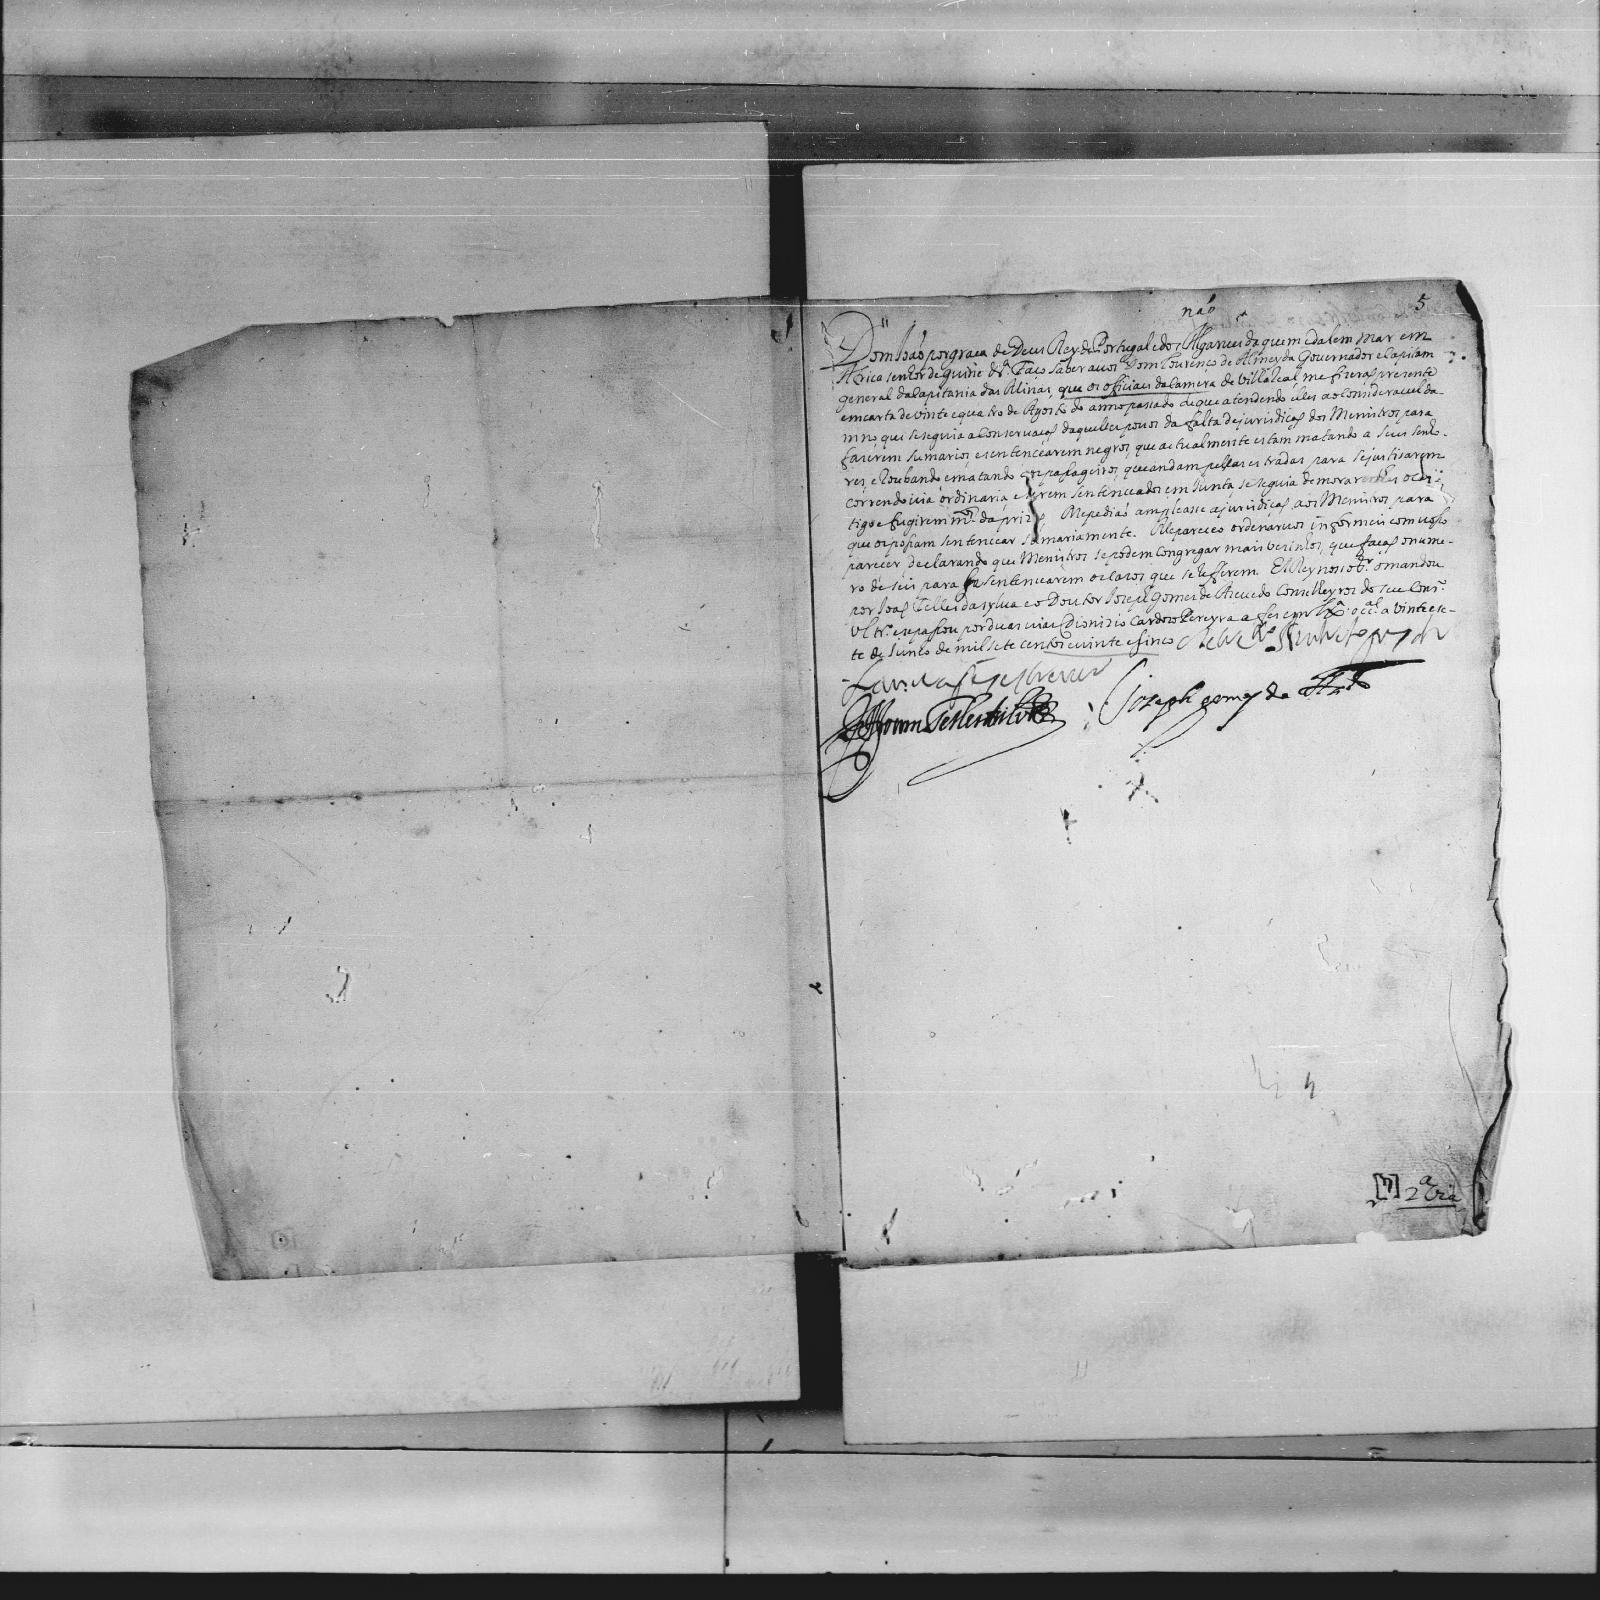 não
5
Dom João por graça de Deus Rey de Portugal e dos Algarues daquem e dalem mar em
Africa senhor de guine &ª. Faço saber a uos Dom Lourenço de Almeyda Gouernador e Capitam
general da Capitania das Minas, que os officiais da Camera de Villa Real me fizerão prezente
em carta de vinte e quatro de Agosto do anno passado de que atendendo elles ao Consideravel da-
mno que se seguia a Conseruação daquelles pouos da falta de jurisdição dos Menistros para
fazerem sumarios e sentencearem negros, que actualmente estam matando a seus senho-
res, e Roubando e matando os passageiros, que andam pellas estradas para se justisarem
correndo via ordinaria e serem sentenceados em Junta, se seguia demorar o cas-
tigo e fugirem m.tos da prizão, Me pedião ampleasse a jurisdição aos Menistros para
que os possam sentencear sumariamente. Me pareceo ordenaruos informeis com uosso
parecer declarando que Menistros se podem Congregar mais vezinhos, que fação o nume-
ro de seis para sentencearem os cazos que se Referem. El Rey nosso s.r o mandou
por João Telles da sylua e o Doutor Joseph gomes de Azeuedo Conselheyros do seu Cons.º
Vltr.º e se passou por duas vias Dionizio Cardozo Pereyra a fes em Lx.ª occ.al a vinte e se-
te de Junho de mil sete centos e vinte e sinco
Joam Telles da Silva
Joseph gomes de Az.do
[7] 2ª via